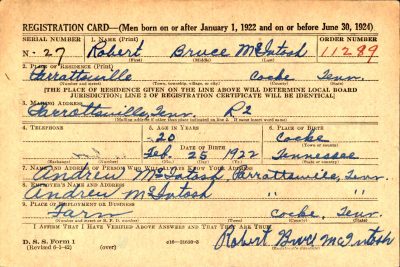 REGISTRATION CARD—(Men born on or after January 1, 1922 and on or before June 30, 1924)
SERIAL NUMBER 1. NAME (Print) ORDER NUMBER
N- 27 Robert Bruce McIntosh 11289
(First) (Middle) (Last)
2. PLACE OF RESIDENCE (Print)
Parrottsville Cocke Tenn.
(Number and street) (Town, township, village, or city) (County) (State)
[THE PLACE OF RESIDENCE GIVEN ON THE LINE ABOVE WILL DETERMINE LOCAL BOARD
JURISDICTION; LINE 2 OF REGISTRATION CERTIFICATE WILL BE IDENTICAL]
3. MAILING ADDRESS
Parrottsville, Tenn. R2
[Mailing address if other than place indicated on line 2. If same insert word same]
4. TELEPHONE 5. AGE IN YEARS 6. PLACE OF BIRTH
20 Cocke
DATE OF BIRTH (Town or county)
Feb. 25 1922 Tennessee
(Exchange) (Number) (Mo.) (Day) (Yr.) (State or country)
7. NAME AND ADDRESS OF PERSON WHO WILL ALWAYS KNOW YOUR ADDRESS
Andrew McIntosh Parrottsville, Tenn.
8. EMPLOYER'S NAME AND ADDRESS
Andrew McIntosh " " "
9. PLACE OF EMPLOYMENT OR BUSINESS
Farm Cocke, Tenn.
(Number and street or R. F. D. number) (Town) (County) (State)
I AFFIRM THAT I HAVE VERIFIED ABOVE ANSWERS AND THAT THEY ARE TRUE.
D. S. S. Form 1
(Revised 6-9-42) (over) Robert Bruce McIntosh